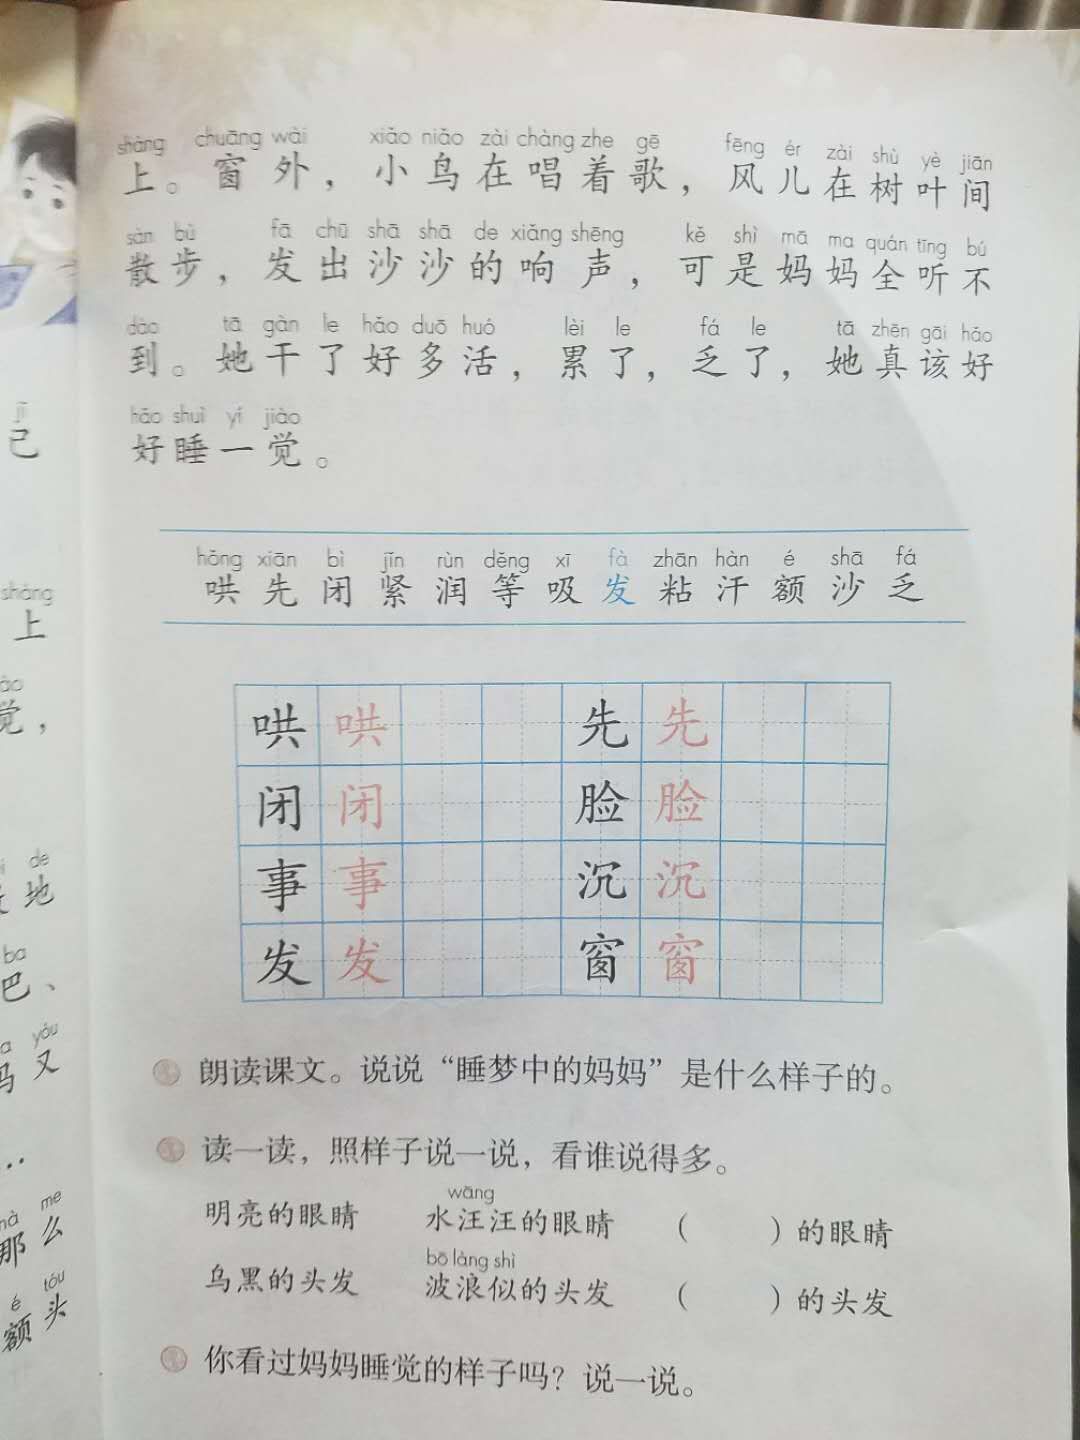 shàng chuāng wài xiǎo niǎo zài chàng zhe gē fēng ér zài shù yè jiān
上。窗外，小鸟在唱着歌，风儿在树叶间
sàn bù fā chū shā shā de xiǎng shēng kě shì mā ma quán tīng bú
散步，发出沙沙的响声，可是妈妈全听不
dào tā gàn le hǎo duō huó lèi le fá le tā zhēn gāi hǎo
到。她干了好多活，累了，乏了，她真该好
hǎo shuì yí jiào
好睡一觉。
hǒng xiān bì jǐn rùn děng xī fà zhān hàn é shā fá
哄先闭紧润等吸发粘汗额沙乏
哄 哄 先 先
闭 闭 脸 脸
事 事 沉 沉
发 发 窗 窗
朗读课文。说说“睡梦中的妈妈”是什么样子的。
读一读，照样子说一说，看谁说得多。
wāng
明亮的眼睛 水汪汪的眼睛 （ ）的眼睛
bō làng shì
乌黑的头发 波浪似的头发 （ ）的头发
你看过妈妈睡觉的样子吗？说一说。
jǐ
己
shàng
上
觉，
de
地
ba
巴、
yòu
妈又
nà me
那么
é tóu
额头